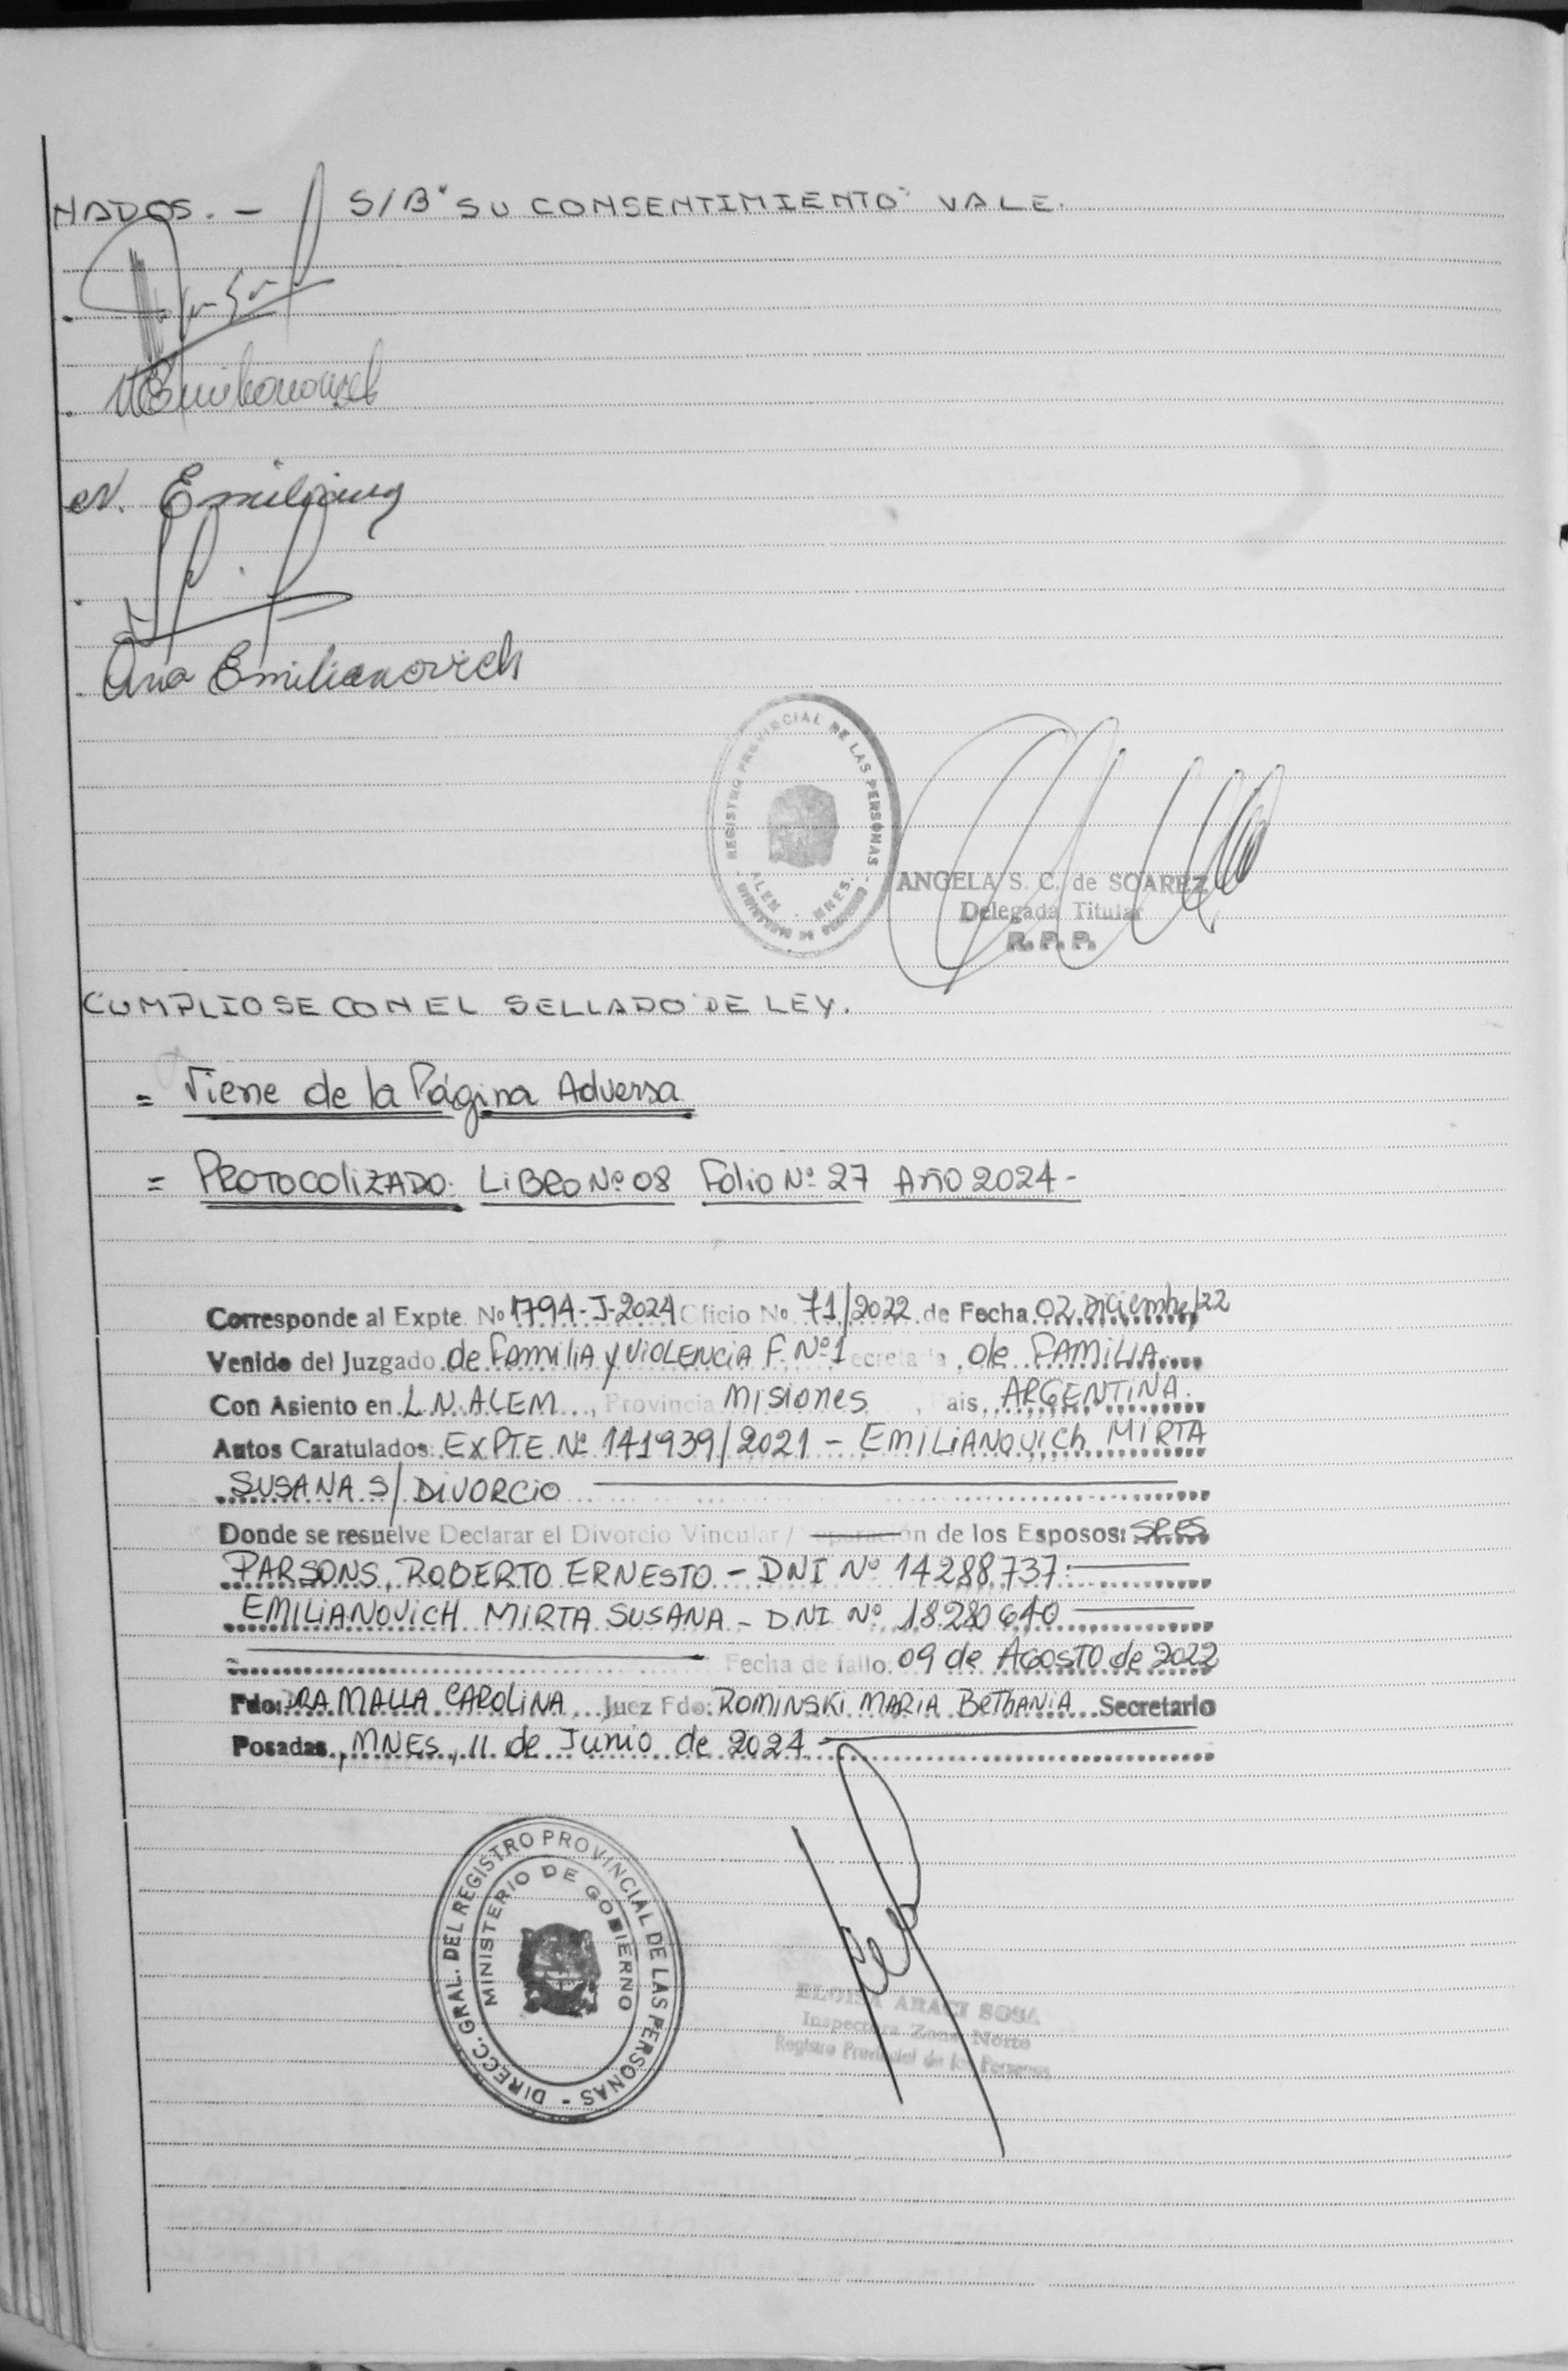 NADOS. - S/B "SU CONSENTIMIENTO" VALE.
Ana Emilianovich
REGISTRO PROVINCIAL DE LAS PERSONAS
ALEM - MNES.
ANGELA S. C. de SOAREZ
Delegada Titular
R. P. P.
CUMPLIOSE CON EL SELLADO DE LEY.
= Viene de la Página Adversa
= PROTOCOLIZADO: LIBRO Nº 08 Folio Nº 27 AÑO 2024-
Corresponde al Expte. Nº 1794-J-2024 Oficio Nº 71/2022 de Fecha 02 Diciembre/22
Venido del Juzgado de Familia y VIOLENCIA F. Nº1 ecretaría de FAMILIA
Con Asiento en L.N. ALEM, Provincia Misiones, País, ARGENTINA.
Autos Caratulados: EXPTE Nº 141939/2021 - EMILIANOVICH MIRTA
SUSANA S/ DIVORCIO
Donde se resuelve Declarar el Divorcio Vincular / Separación de los Esposos: SRES
PARSONS, ROBERTO ERNESTO - DNI Nº 14288737
EMILIANOVICH MIRTA SUSANA - DNI Nº 18280640
Fecha de fallo: 09 de AGOSTO de 2022
Fdo: DRA MALLA CAROLINA Juez Fdo: ROMINSKI MARIA BETHANIA Secretario
Posadas, MNES, 11 de Junio de 2024
DIRECC. GRAL. DEL REGISTRO PROVINCIAL DE LAS PERSONAS -
MINISTERIO DE GOBIERNO
ELOISA ARACI SOSA
Inspectora Zona Norte
Registro Provincial de las Personas